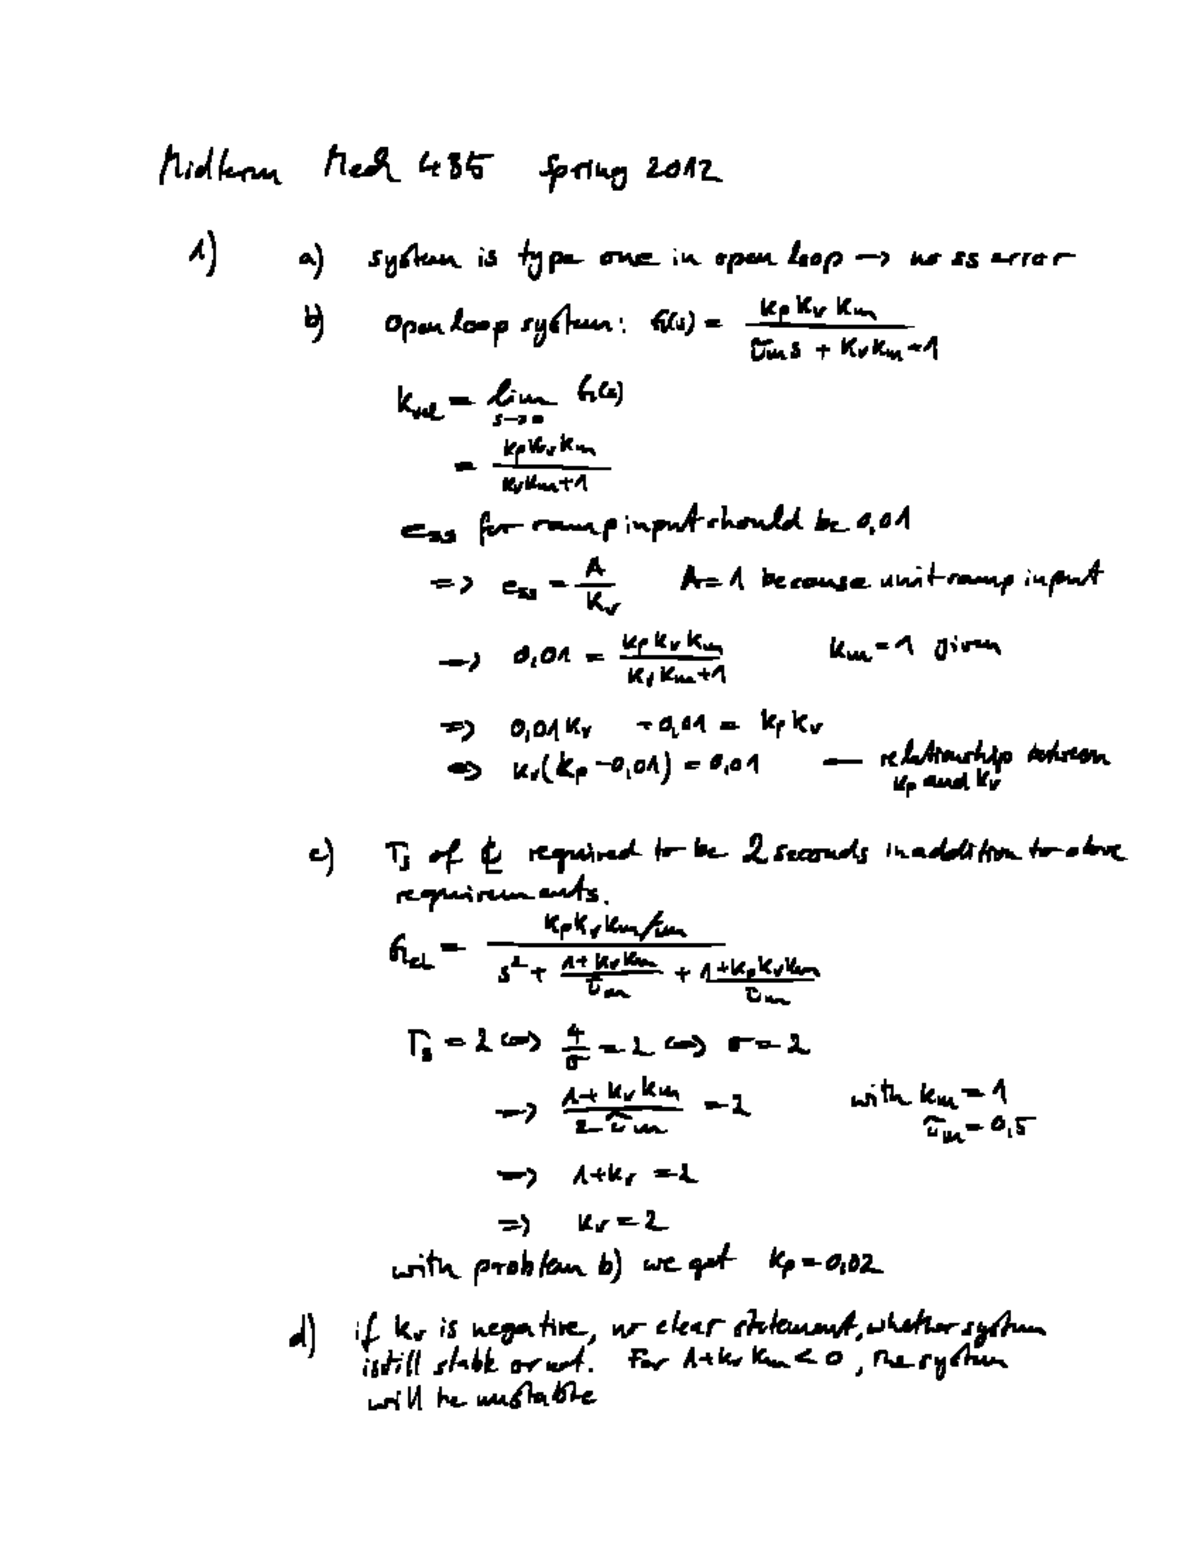 Midterm Mech 435 Spring 2012
1) a) system is type one in open loop → no ss error
b) open loop system: G(s) = kp kv km / τm s + kv km + 1
kvel = lim s→0 G(s)
= kp kv km / kv km + 1
ess for ramp input should be 0,01
=> ess = A / Kv A = 1 because unit ramp input
→ 0,01 = kp kv km / kv km + 1 km = 1 given
=> 0,01 kv + 0,01 = kp kv
=> kv (kp - 0,01) = 0,01 — relationship between
kp and kv
c) Ts of CL required to be 2 seconds in addition to above
requirements.
GCL = kp kv km / τm / s² + 1 + kv km / τm + 1 + kp kv km / τm
Ts = 2 <=> 4 / σ = 2 <=> σ = 2
→ 1 + kv km / 2 τm = 2 with km = 1
τm = 0,5
→ 1 + kv = 2
=> kv = 2
with problem b) we get kp = 0,02
d) if kv is negative, no clear statement, whether system
is still stable or not. For 1 + kv km < 0, the system
will be unstable